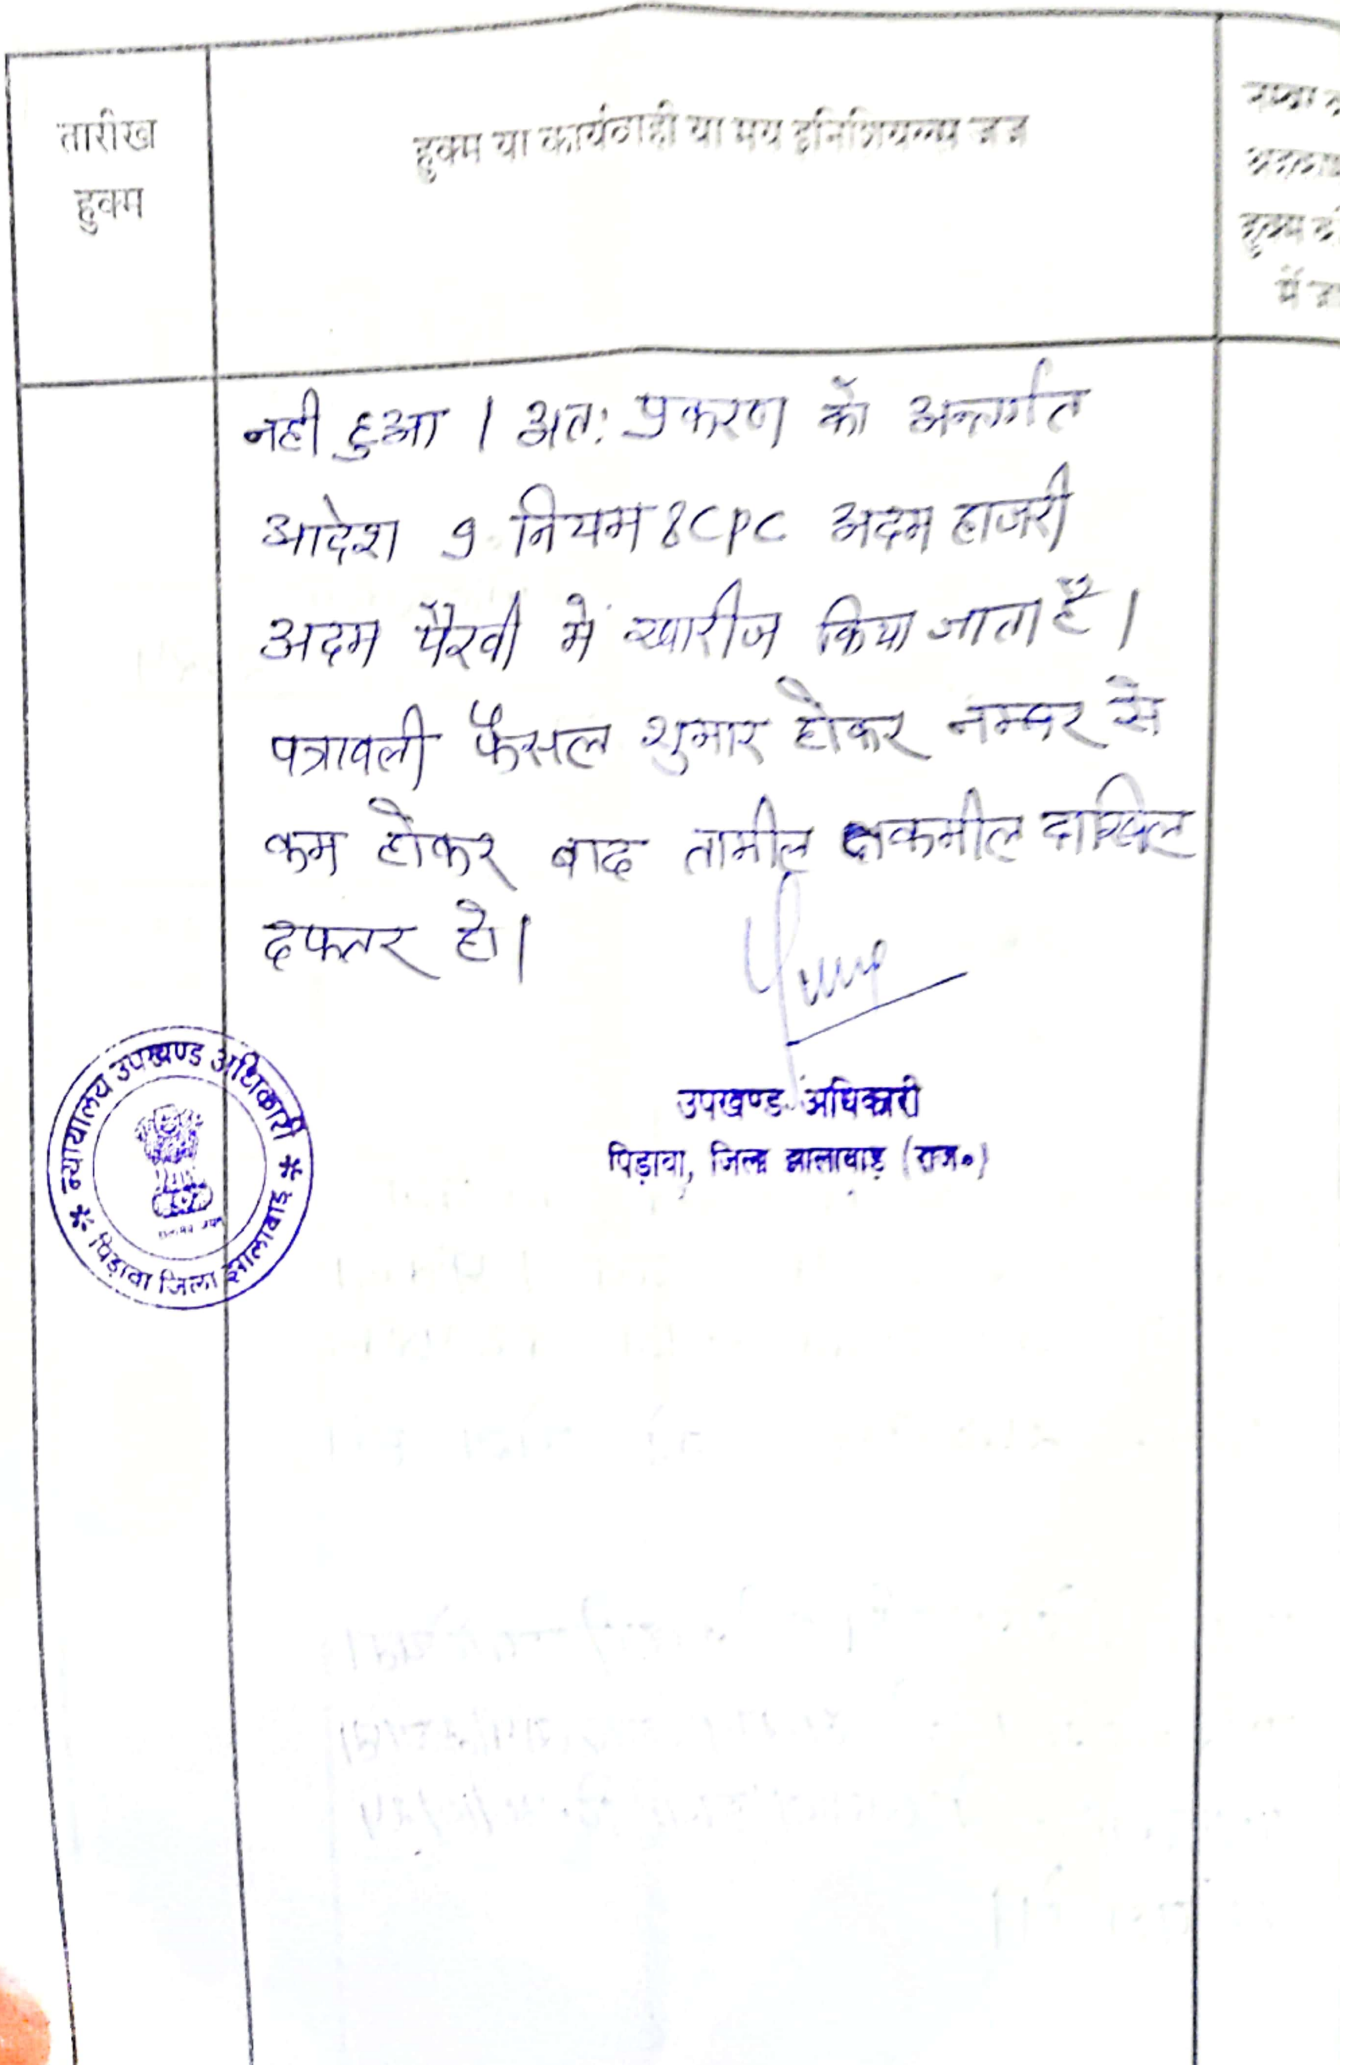 तारीख
हुक्म
हुक्म या कार्यवाही या मय इनिशियल्स जज
हुक्म
में
नही हुआ । अतः प्रकरण को अन्तर्गत
आदेश 9 नियम 8 CPC अदम हाजरी
अदम पैरवी में खारीज किया जाता है ।
पत्रावली फैसल शुमार होकर नम्बर से
कम होकर बाद तामील तकमील दाखिल
दफ्तर हो ।
उपखण्ड अधिकारी
पिड़ावा, जिला झालावाड़ (राज०)
न्यायालय उपखण्ड अधिकारी
पिड़ावा जिला झालावाड़